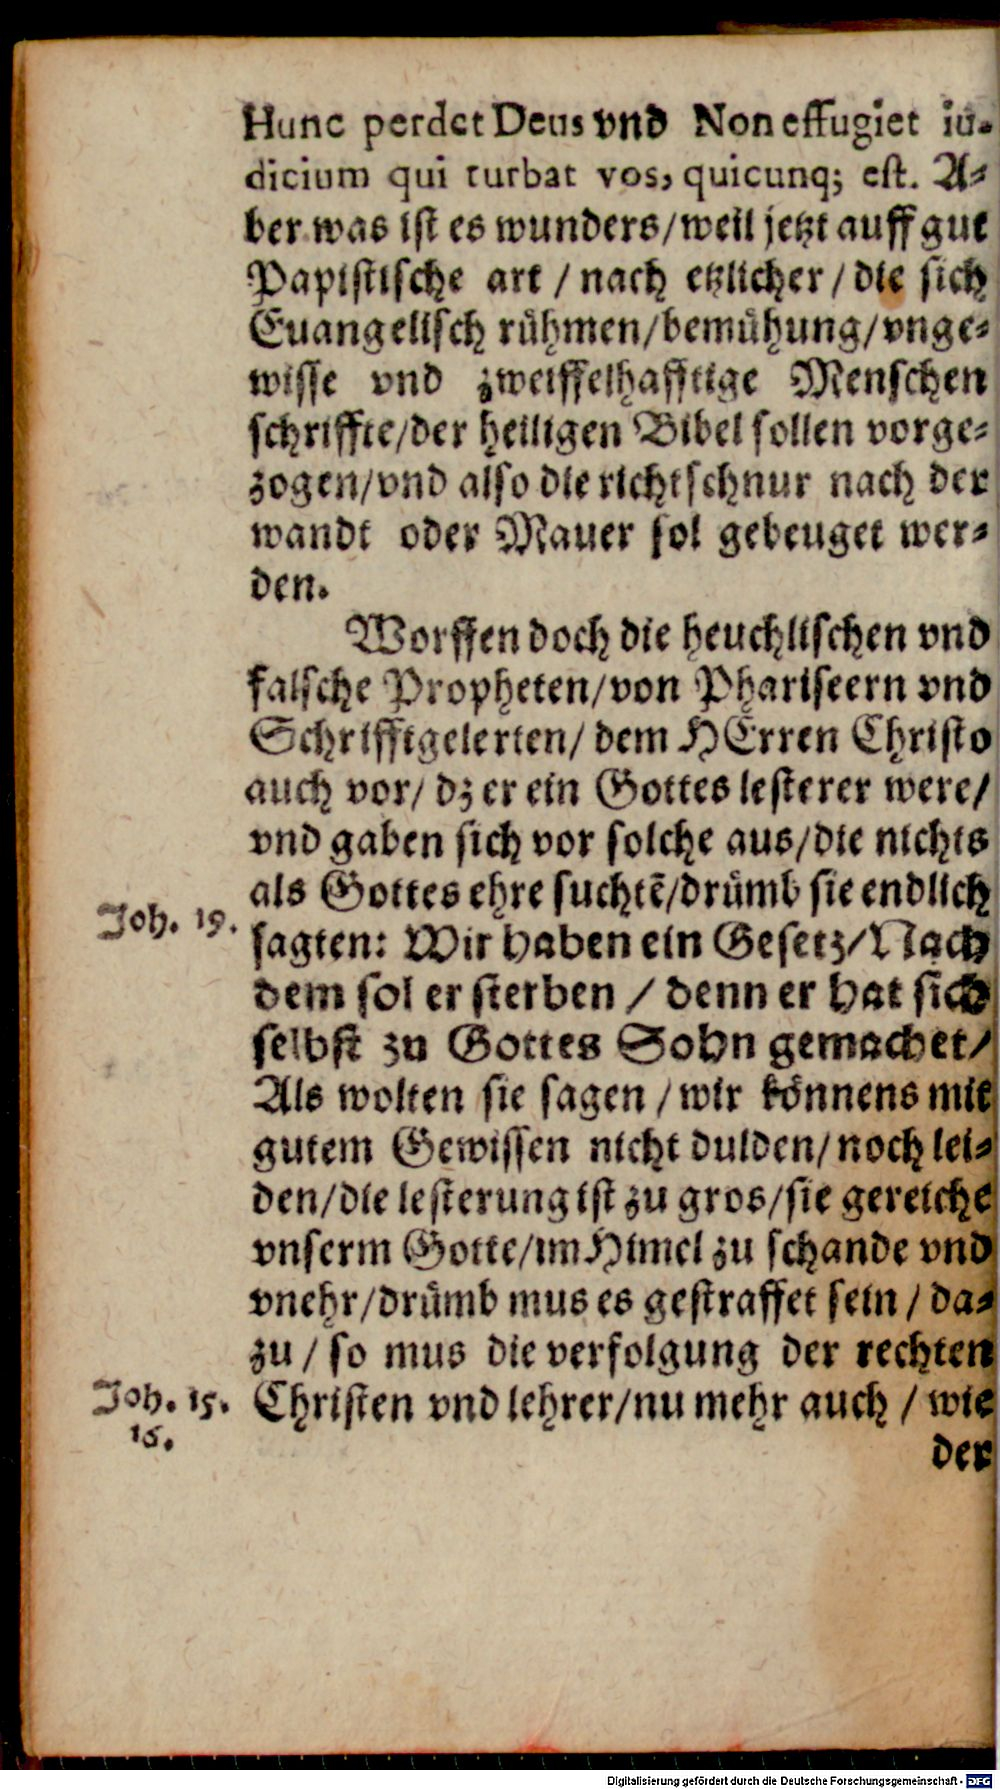 Hunc perdet Deus vnd Non effugiet iu-
dicium qui turbat vos, quicunq; est. A-
ber was ist es wunders/weil jetzt auff gut
Papistische art / nach etzlicher / die sich
Euangelisch rühmen/bemühung/vnge-
wisse vnd zweiffelhafftige Menschen
schriffte/der heiligen Bibel sollen vorge-
zogen/vnd also die richtschnur nach der
wandt oder Mauer sol gebeuget wer-
den.
Worffen doch die heuchlischen vnd
falsche Propheten/von Phariseern vnd
Schrifftgelerten/ dem HErren Christo
auch vor/ dz er ein Gottes lesterer were/
vnd gaben sich vor solche aus/die nichts
als Gottes ehre suchtẽ/drümb sie endlich
Joh. 19.
sagten: Wir haben ein Gesetz/Nach
dem sol er sterben / denn er hat sich
selbst zu Gottes Sohn gemachet/
Als wolten sie sagen / wir könnens mit
gutem Gewissen nicht dulden/noch lei-
den/die lesterung ist zu gros/sie gereiche
vnserm Gotte/im Himel zu schande vnd
vnehr/drümb mus es gestraffet sein / da-
zu / so mus die verfolgung der rechten
Joh. 15.
16.
Christen vnd lehrer/nu mehr auch / wie
der
Digitalisierung gefördert durch die Deutsche Forschungsgemeinschaft - DFG